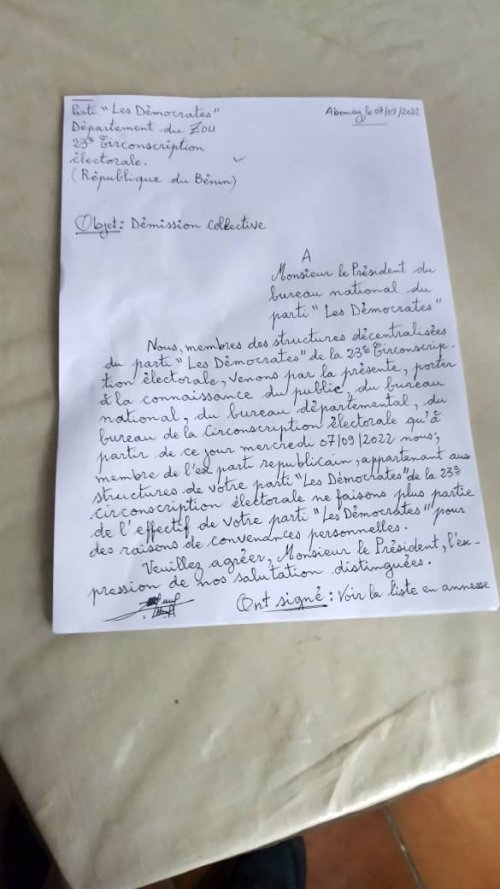 Parti "Les Démocrates"
Abomey le 07/09/2022
Département du Zou
23e Circonscription
électorale.
(République du Bénin)
Objet: Démission collective
A
Monsieur le Président du
bureau national du
parti "Les Démocrates"
Nous, membres des structures décentralisées
du parti "Les Démocrates" de la 23e Circonscrip-
tion électorale, venons par la présente, porter
à la connaissance du public, du bureau
national, du bureau départemental, du
bureau de la Circonscription électorale qu'à
partir de ce jour mercredi 07/09/2022 nous,
membre de l'ex parti republicain, appartenant aux
structures de votre parti "Les Démocrates" de la 23e
circonscription électorale ne faisons plus partie
de l'effectif de votre parti "Les Démocrates" pour
des raisons de convenances personnelles.
Veuillez agréer, Monsieur le Président, l'ex-
pression de nos salutation distinguées.
Ont signé : Voir la liste en annesse